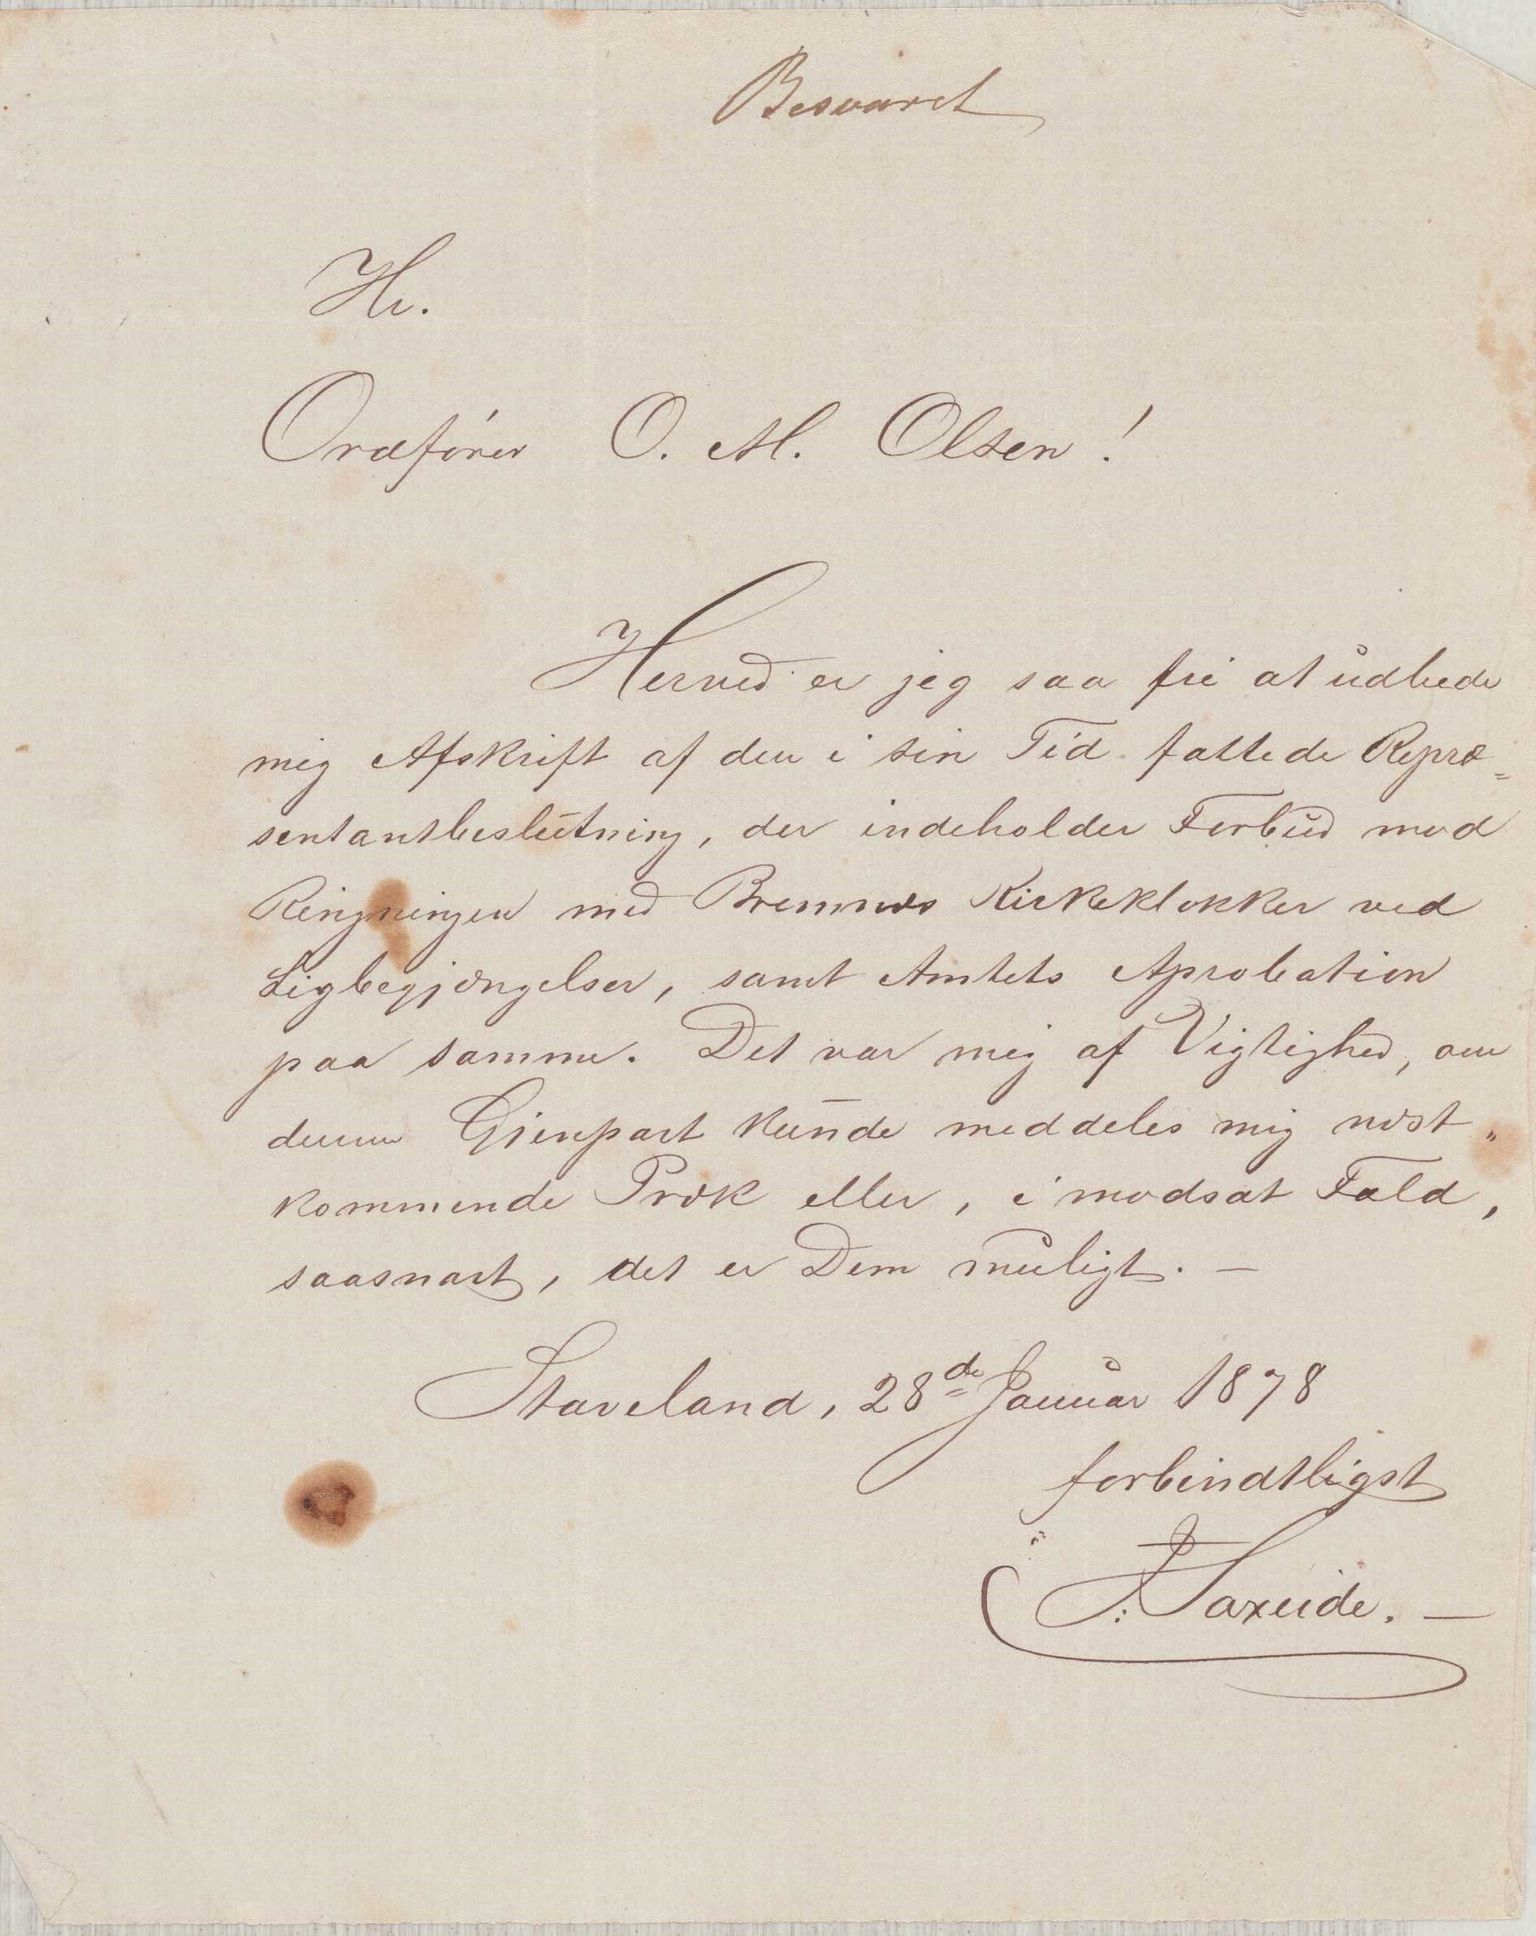 Besvaret
Hr.
Ordfører O. M. Olsen!
Herved er jeg saa fri at udbede
mig Afskrift af den i sin Tid fattede Repræ=
sentantbeslutning, der indeholder Forbud mod
Ringningen med Bremnæs Kirkeklokker ved
Ligbegjængelser, samt Amtets Aprobation
paa samme. Det var mig af Vigtighed, om
denne Gjenpart kunde meddeles mig næst„
kommende Præk eller, i modsat Fald,
saasnart, det er Dem muligt. —
Staveland, 28de Januar 1878
forbindtligst
Saxeide. —